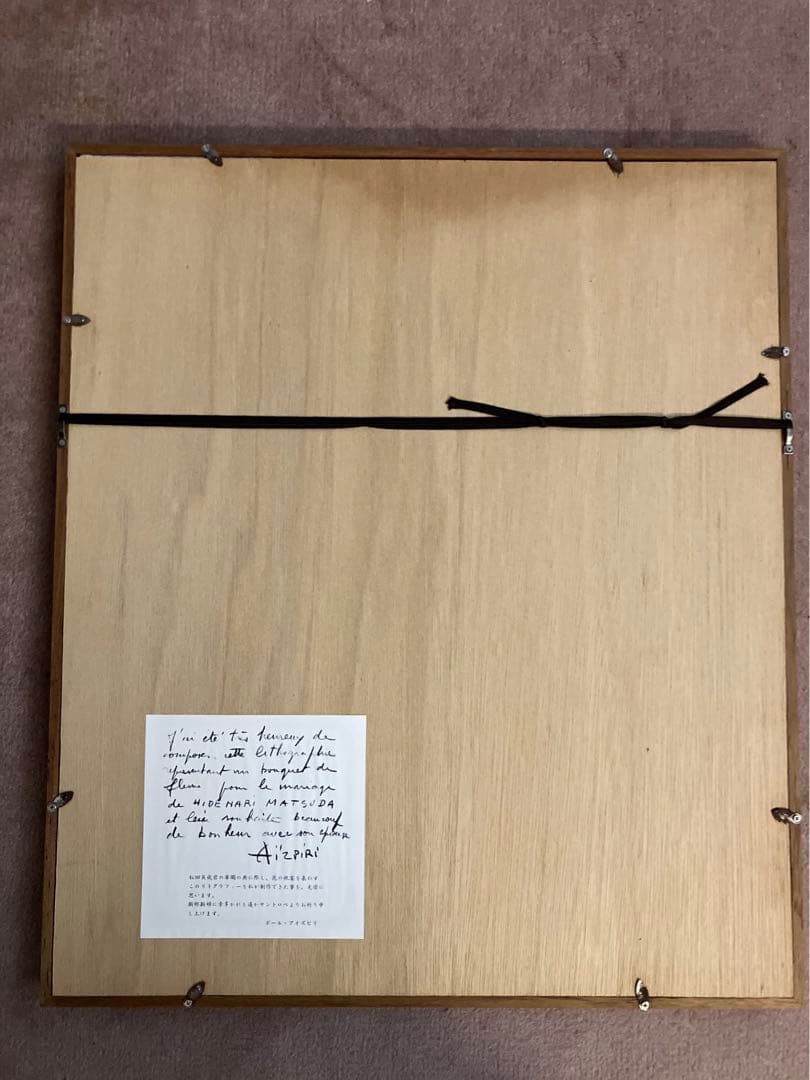 J'ai été très heureux de
composer cette lithographie
représentant un bouquet de
fleurs pour le mariage
de HIDENARI MATSUDA
et lui souhaite beaucoup
de bonheur avec son épouse
Aïzpiri
松田英成君の華燭の典に際し、花の祝宴を表わす
このリトグラフィーを私が制作できた事を、光栄に
思います。
新郎新婦に幸多かれと遥かサントロペよりお祈り申
し上げます。
ポール・アイズピリ